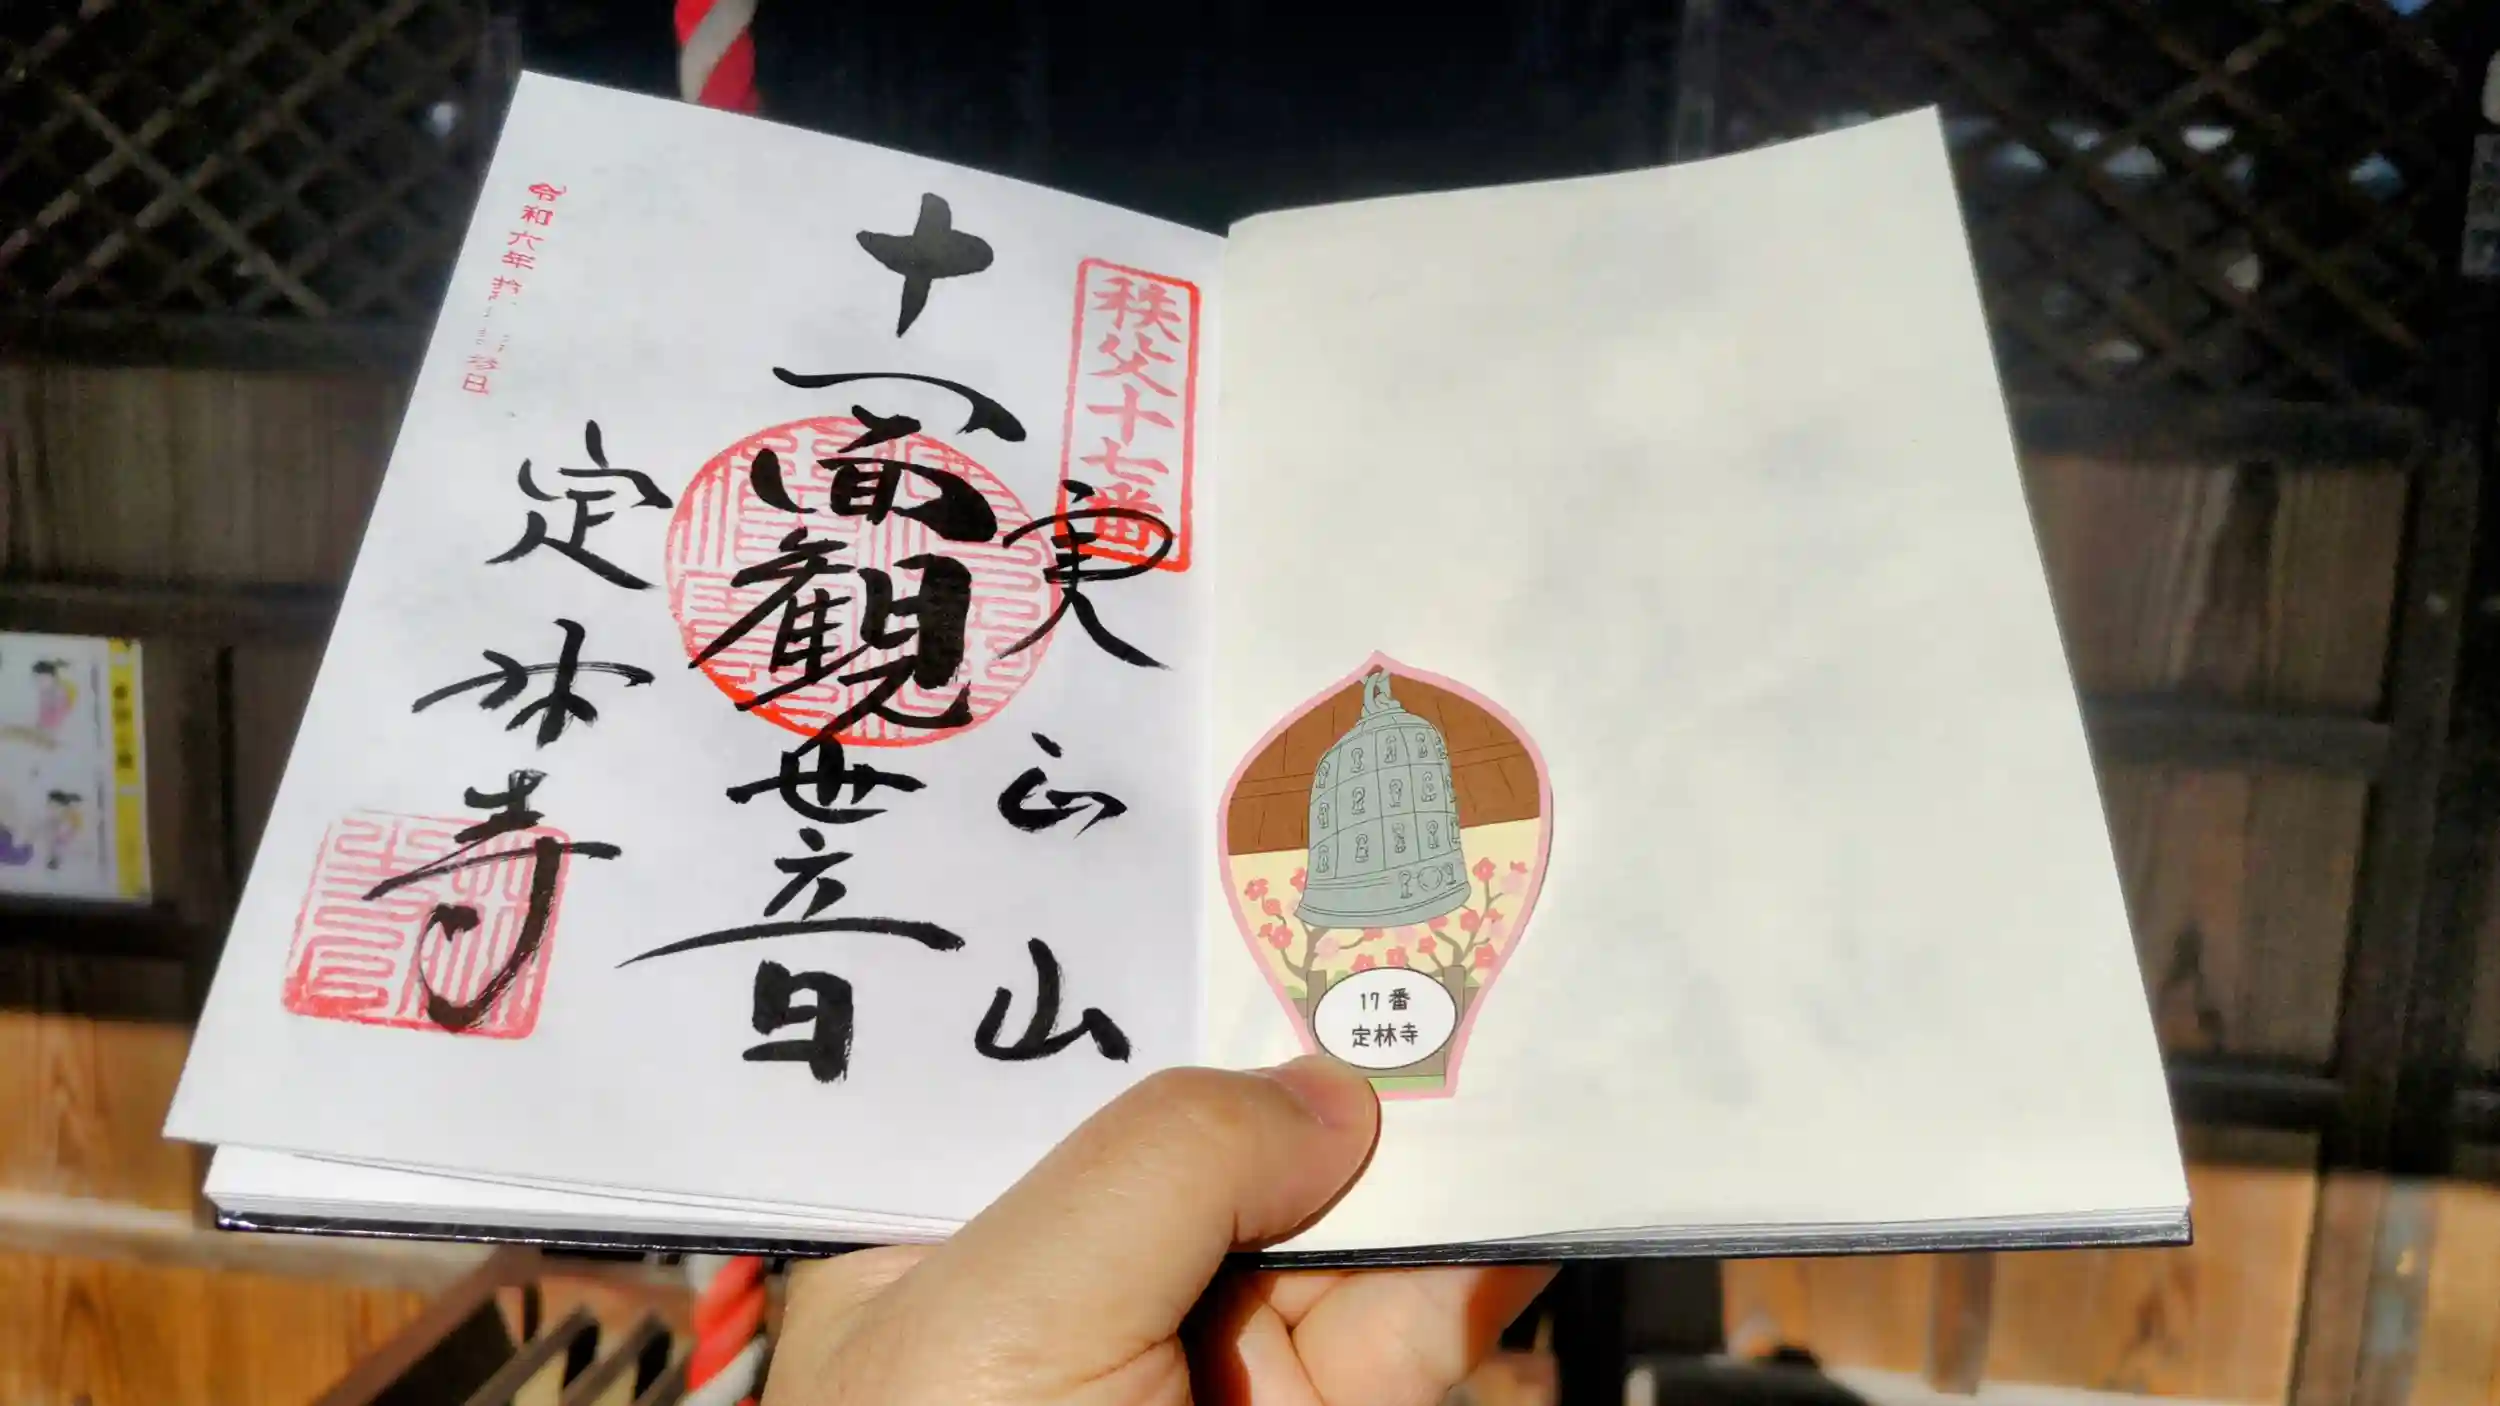 秩父十七番
実正山
十一面観世音
定林寺
令和六年拾
日
17番
定林寺